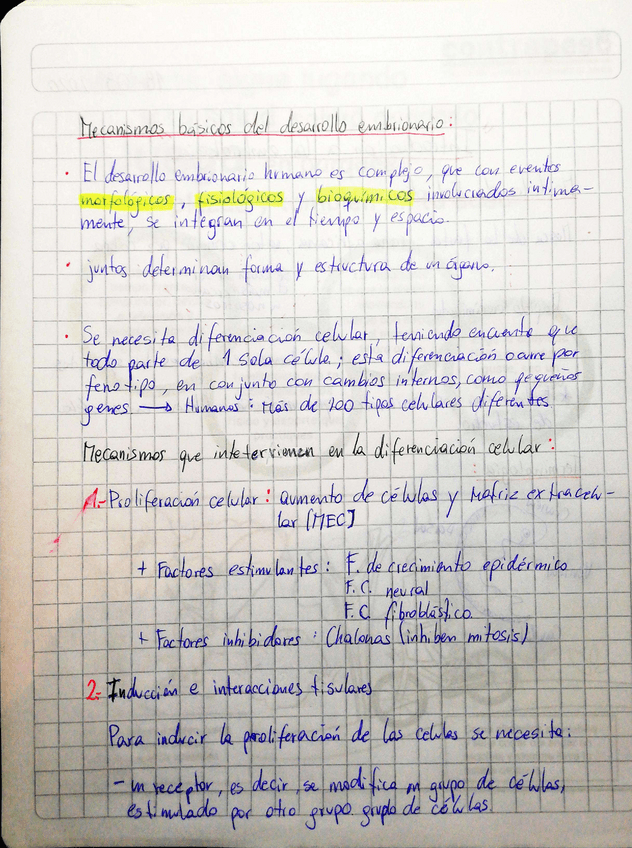 Mecanismos básicos del desarrollo embrionario:
• El desarrollo embrionario humano es complejo, que con eventos
morfológicos, fisiológicos y bioquímicos involucrados intima-
mente, se integran en el tiempo y espacio.
• juntos determinan forma y estructura de un órgano.
• Se necesita diferenciación celular, teniendo encuenta que
todo parte de 1 sola célula; esta diferenciación ocurre por
fenotipo, en conjunto con cambios internos, como pequeños
genes → Humanos: Más de 200 tipos celulares diferentes
Mecanismos que intetervienen en la diferenciación celular:
1.- Proliferación celular: aumento de células y Matriz extracelu-
lar [MEC]
+ Factores estimulantes: F. de crecimiento epidérmico
F.C. neural
F.C. fibroblástico.
+ Factores inhibidores: Chalonas (inhiben mitosis)
2.- Inducción e interacciones tisulares
Para inducir la proliferación de las celulas se necesita:
- un receptor, es decir, se modifica un grupo de células,
estimulado por otro grupo grupo de células